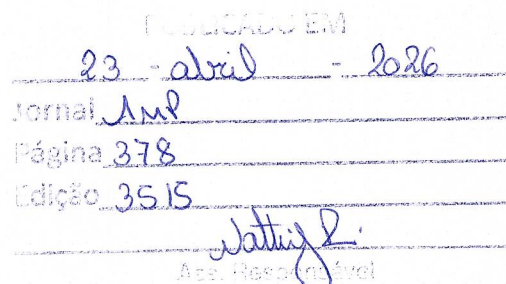 PUBLICADO EM
23 - abril - 2026
Jornal AMP
Página 378
Edição 3515
Ass. Responsável